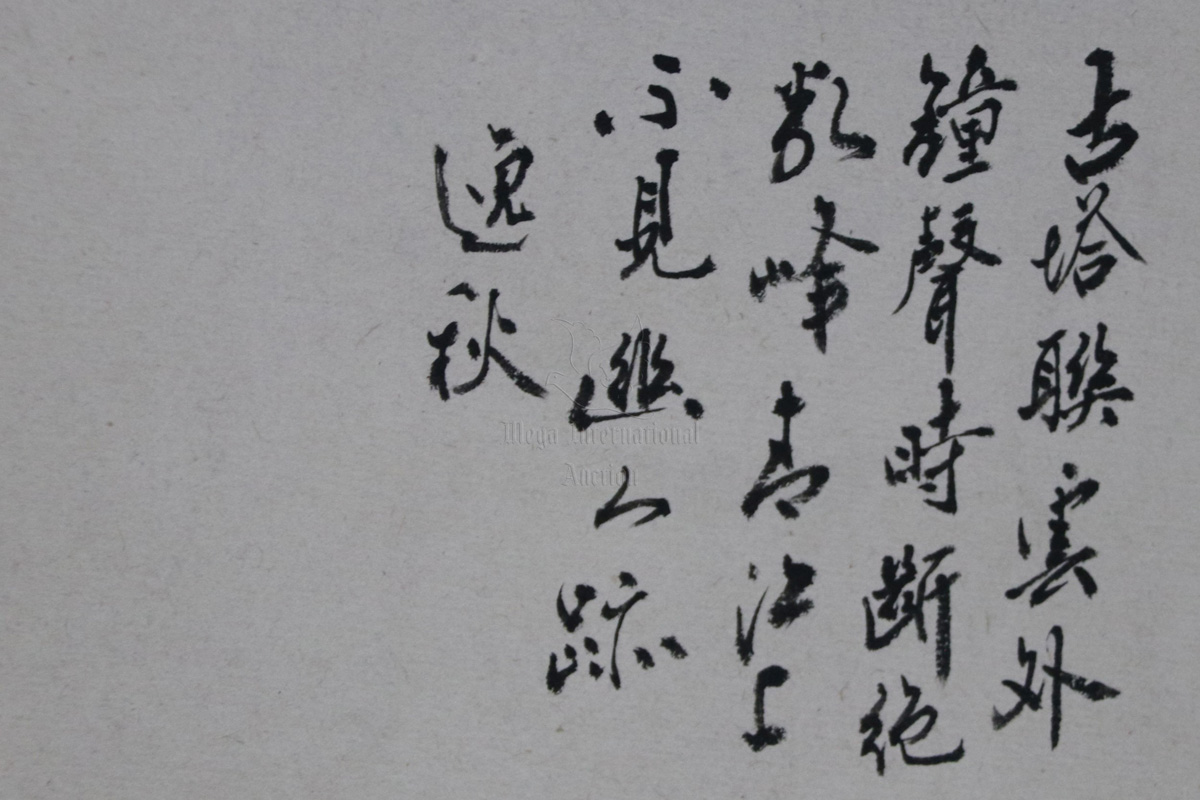 古塔聯雲外
鐘聲時斷絕
數峰青江上
不見幽人蹤
逸秋
Mega International
Auction